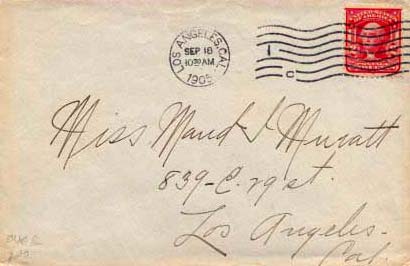 LOS ANGELES, CAL.
SEP 18
1030 AM
1905
1
C
Miss Maud I Muratt
839-E. 29 st.
Los Angeles-
Cal.